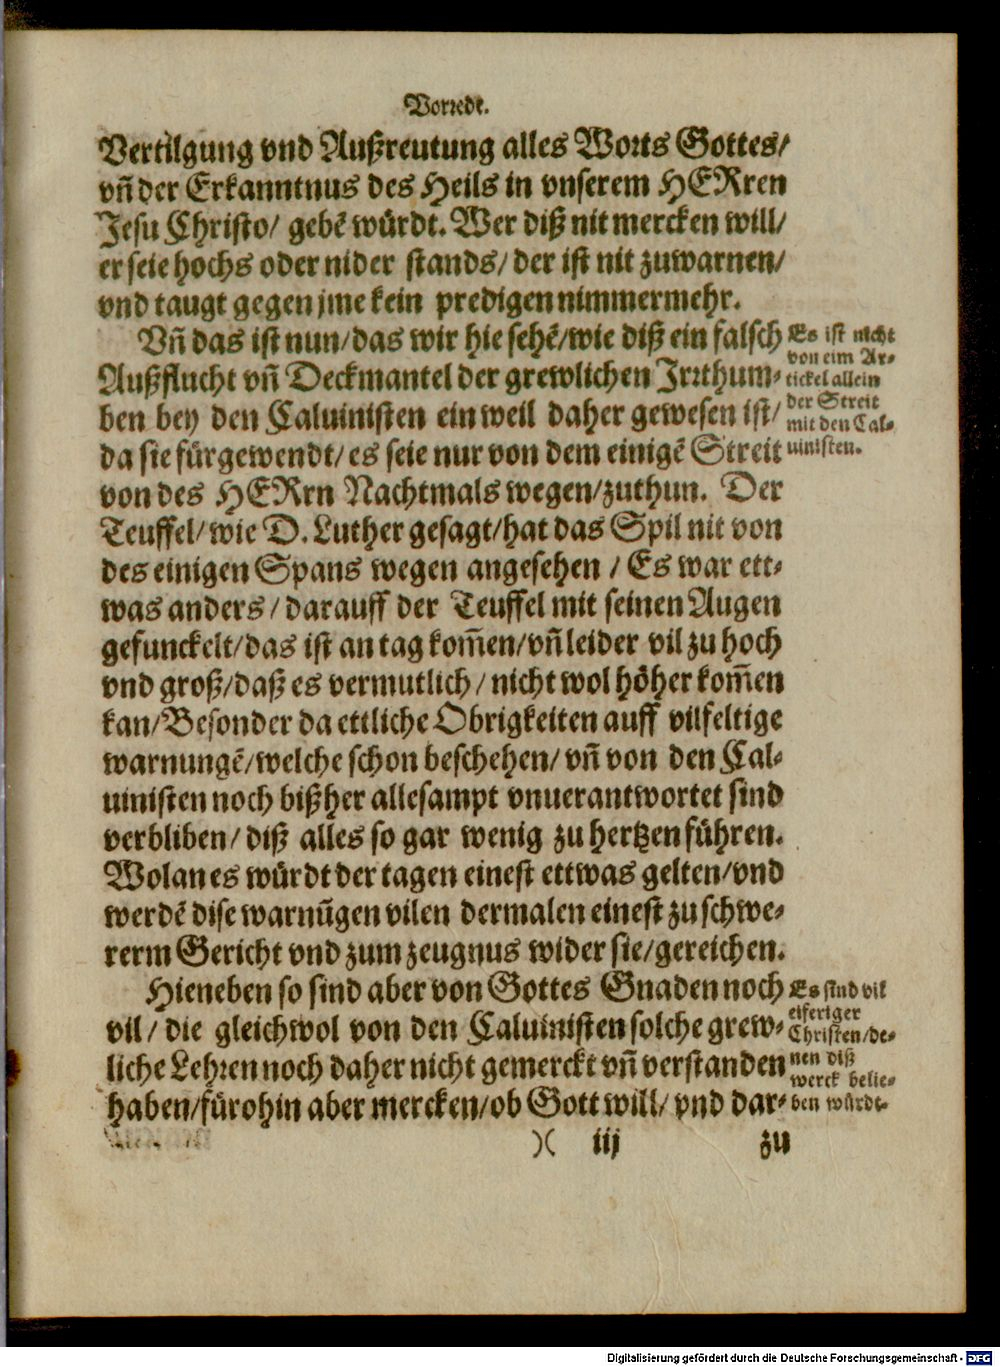 Vorrede.
Vertilgung vnd Außreutung alles Worts Gottes/
vñ der Erkanntnus des Heils in vnserem HERren
Jesu Christo/ gebẽ würdt. Wer diß nit mercken will/
er seie hochs oder nider stands/ der ist nit zuwarnen/
vnd taugt gegen jme kein predigen nimmermehr.
Vñ das ist nun/das wir hie sehẽ/wie diß ein falsch
Außflucht vñ Deckmantel der grewlichen Irrthum-
ben bey den Caluinisten ein weil daher gewesen ist/
da sie fürgewendt/es seie nur von dem einigẽ Streit
von des HERrn Nachtmals wegen/zuthun. Der
Teuffel/wie D. Luther gesagt/hat das Spil nit von
des einigen Spans wegen angesehen / Es war ett-
was anders / darauff der Teuffel mit seinen Augen
gefunckelt/das ist an tag kom̃en/vñ leider vil zu hoch
vnd groß/daß es vermutlich / nicht wol höher kom̃en
kan/Besonder da ettliche Obrigkeiten auff vilfeltige
warnungẽ/welche schon beschehen/ vñ von den Cal-
uinisten noch bißher allesampt vnuerantwortet sind
verbliben/ diß alles so gar wenig zu hertzen führen.
Wolan es würdt der tagen einest ettwas gelten/vnd
werdẽ dise warnũgen vilen dermalen einest zu schwe-
rerm Gericht vnd zum zeugnus wider sie/gereichen.
Hieneben so sind aber von Gottes Gnaden noch
vil / die gleichwol von den Caluinisten solche grew-
liche Lehren noch daher nicht gemerckt vñ verstanden
haben/fürohin aber mercken/ob Gott will/ vnd dar-
)( iij zu
Es ist nicht
von eim Ar-
tickel allein
der Streit
mit den Cal-
uinisten.
Es sind vil
eiferiger
Christen/de-
nen diß
werck belie-
ben würdt.
Digitalisierung gefördert durch die Deutsche Forschungsgemeinschaft - DFG